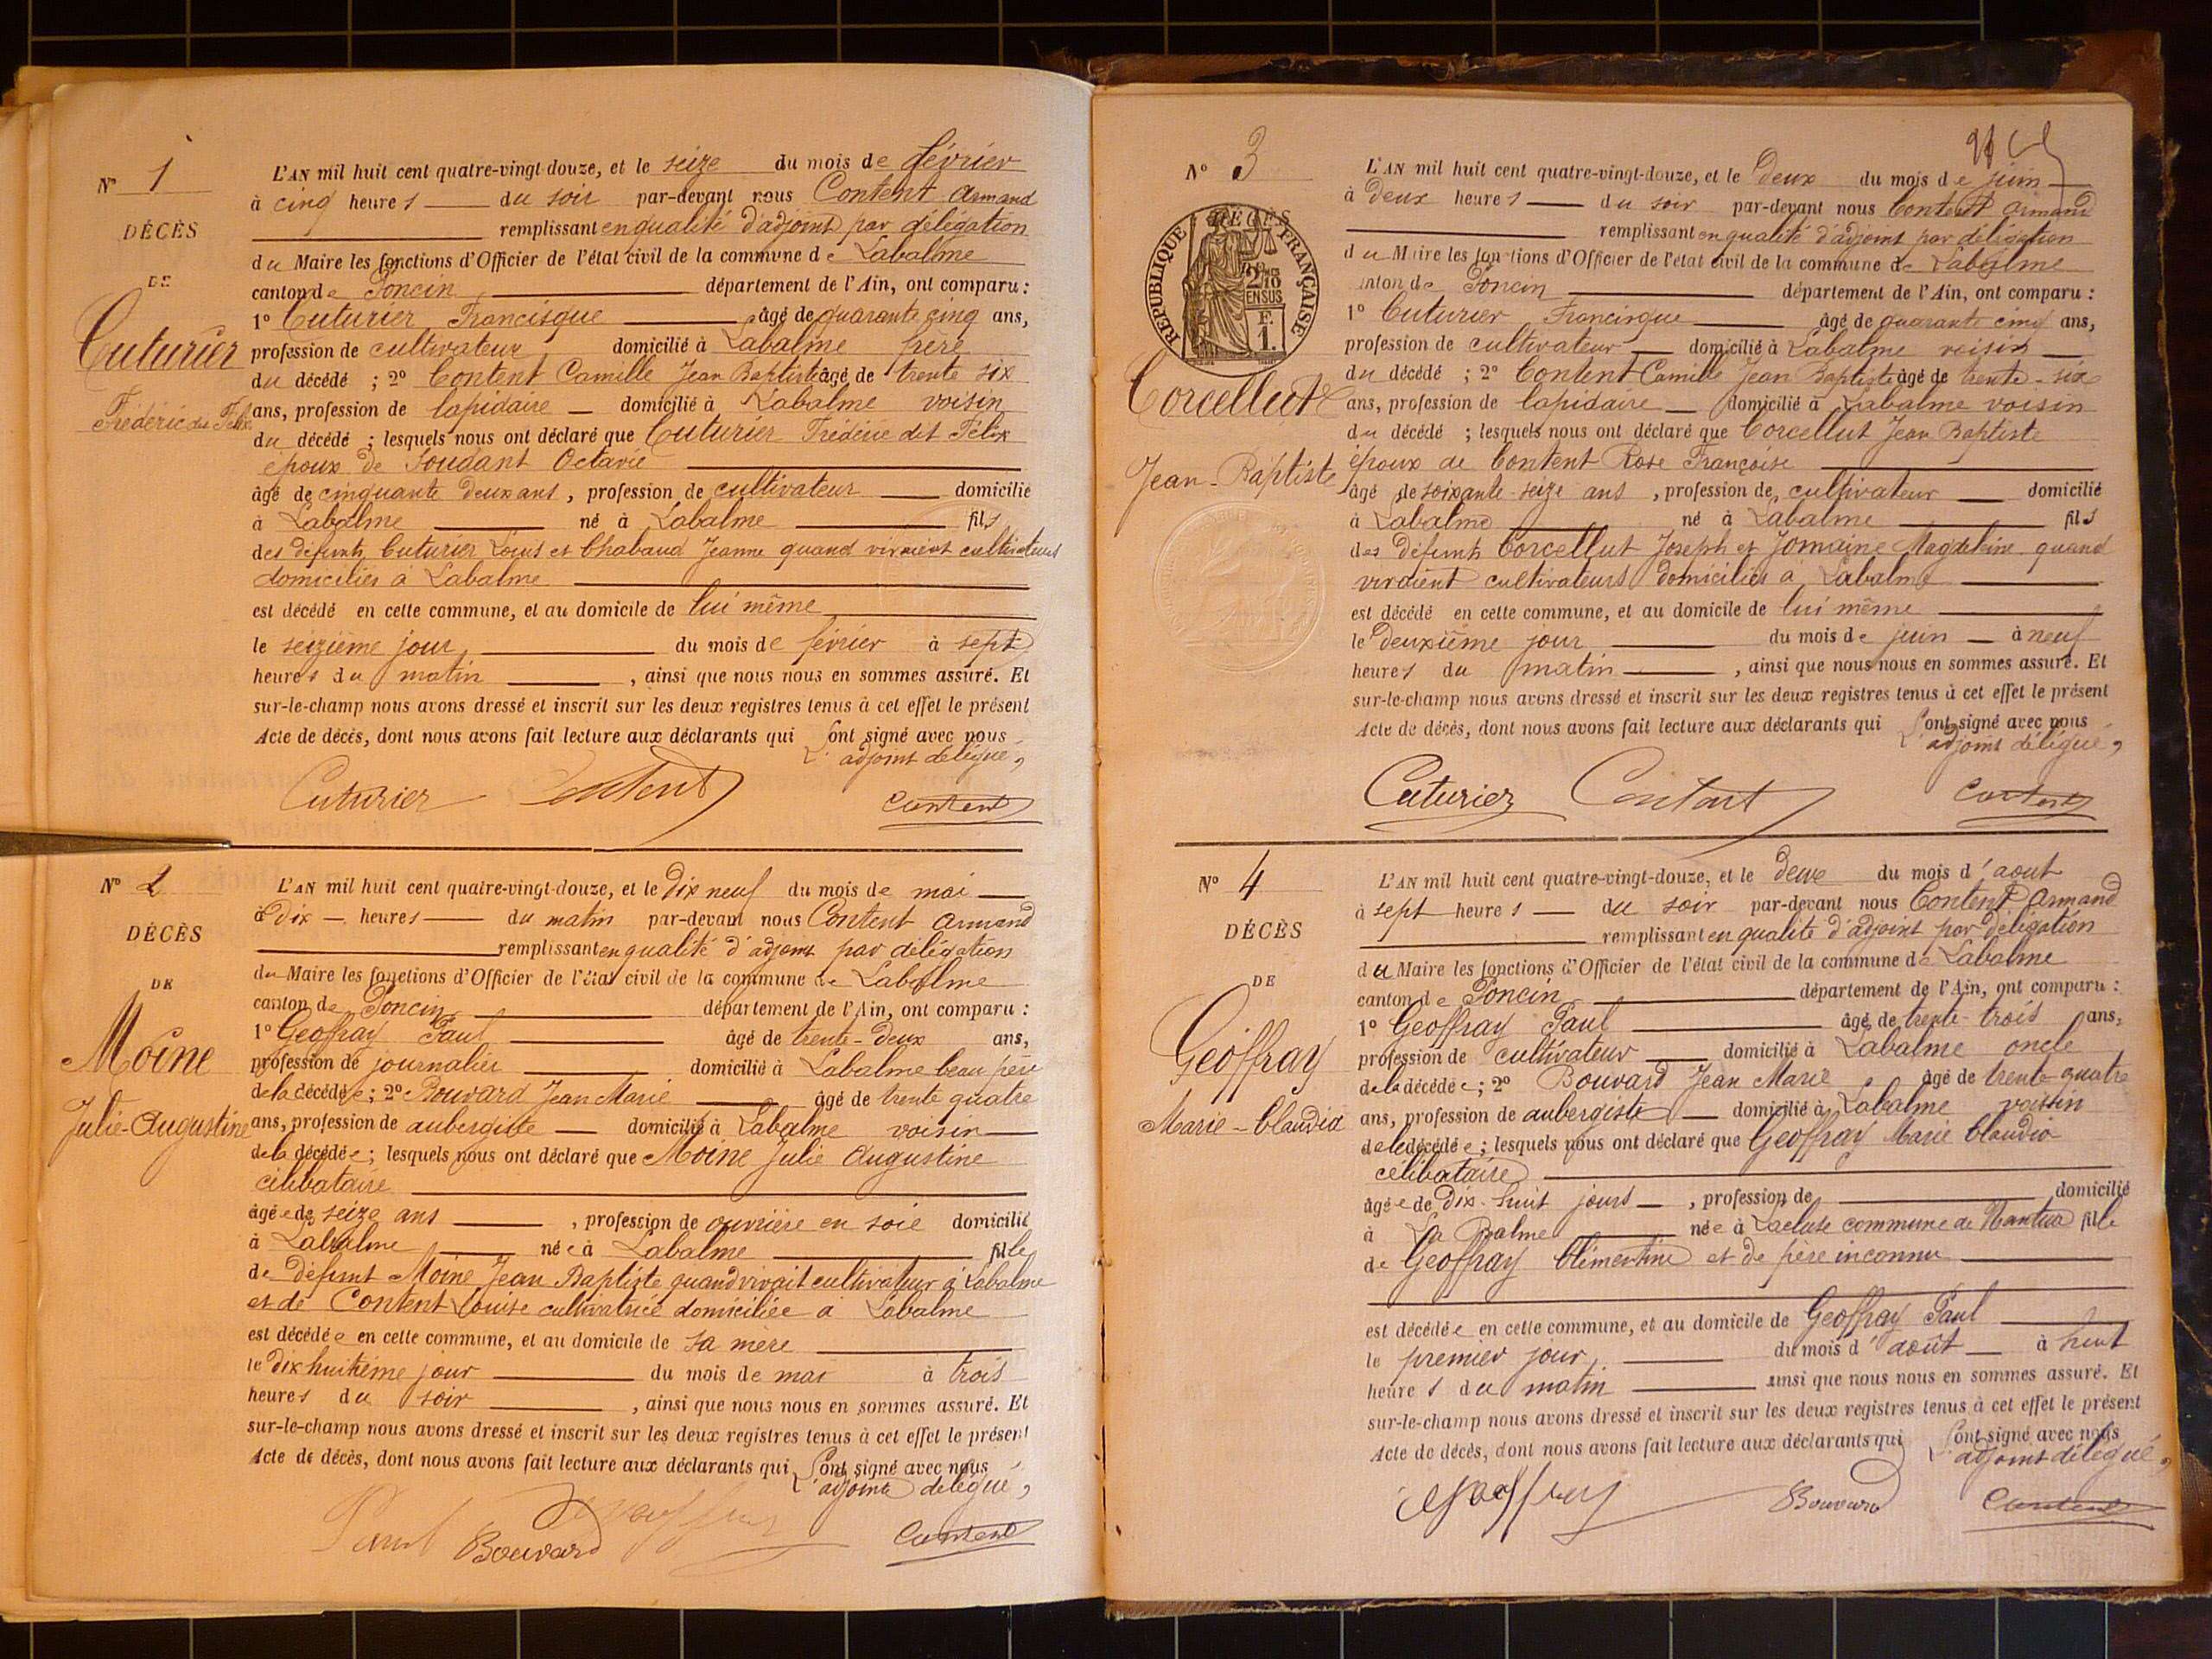 N° 1
DÉCÈS
DE
Cuturier
Frédéric dit Félix
L'AN mil huit cent quatre-vingt-douze, et le seize du mois de février
à cinq heures du soir par-devant nous Content Armand
remplissant en qualité d'adjoint par délégation
du Maire les fonctions d'Officier de l'état civil de la commune de Labalme
canton de Poncin département de l'Ain, ont comparu :
1° Cuturier Francisque âgé de quarante cinq ans,
profession de cultivateur domicilié à Labalme frère
du décédé ; 2° Content Camille Jean Baptiste âgé de trente six
ans, profession de lapidaire domicilié à Labalme voisin
du décédé ; lesquels nous ont déclaré que Cuturier Frédéric dit Félix
époux de Soudant Octavie
âgé de cinquante deux ans, profession de cultivateur domicilié
à Labalme né à Labalme fils
des défunts Cuturier Louis et Chabaud Jeanne quand vivaient cultivateurs
domiciliés à Labalme
est décédé en cette commune, et au domicile de lui même
le seizième jour du mois de février à sept
heures du matin, ainsi que nous nous en sommes assuré. Et
sur-le-champ nous avons dressé et inscrit sur les deux registres tenus à cet effet le présent
Acte de décès, dont nous avons fait lecture aux déclarants qui l'ont signé avec nous
L'adjoint délégué,
Cuturier Content Content
N° 2
DÉCÈS
DE
Moine
Julie-Augustine
L'AN mil huit cent quatre-vingt-douze, et le dix neuf du mois de mai
à dix heures du matin par-devant nous Content Armand
remplissant en qualité d'adjoint par délégation
du Maire les fonctions d'Officier de l'état civil de la commune de Labalme
canton de Poncin département de l'Ain, ont comparu :
1° Geoffray Paul âgé de trente-deux ans,
profession de journalier domicilié à Labalme beau père
de la décédée ; 2° Bouvard Jean Marie âgé de trente quatre
ans, profession de aubergiste domicilié à Labalme voisin
de la décédée ; lesquels nous ont déclaré que Moine Julie Augustine
célibataire
âgée de seize ans, profession de ouvrière en soie domicilié
à Labalme née à Labalme fille
de défunt Moine Jean Baptiste quand vivait cultivateur à Labalme
et de Content Louise cultivatrice domiciliée à Labalme
est décédée en cette commune, et au domicile de sa mère
le dix huitième jour du mois de mai à trois
heures du soir, ainsi que nous nous en sommes assuré. Et
sur-le-champ nous avons dressé et inscrit sur les deux registres tenus à cet effet le présent
Acte de décès, dont nous avons fait lecture aux déclarants qui l'ont signé avec nous
L'adjoint délégué,
Paul Geoffray Bouvard Content
N° 3
RÉPUBLIQUE FRANÇAISE
2/10
EN SUS
F.
1.
Corcellut
Jean-Baptiste
L'AN mil huit cent quatre-vingt-douze, et le deux du mois de juin
à deux heures du soir par-devant nous Content Armand
remplissant en qualité d'adjoint par délégation
du Maire les fonctions d'Officier de l'état civil de la commune de Labalme
canton de Poncin département de l'Ain, ont comparu :
1° Cuturier Francisque âgé de quarante cinq ans,
profession de cultivateur domicilié à Labalme voisin
du décédé ; 2° Content Camille Jean Baptiste âgé de trente-six
ans, profession de lapidaire domicilié à Labalme voisin
du décédé ; lesquels nous ont déclaré que Corcellut Jean Baptiste
époux de Content Rose Françoise
âgé de soixante-seize ans, profession de cultivateur domicilié
à Labalme né à Labalme fils
des défunts Corcellut Joseph et Jomaine Magdeleine quand
vivaient cultivateurs domiciliés à Labalme
est décédé en cette commune, et au domicile de lui même
le deuxième jour du mois de juin à neuf
heures du matin, ainsi que nous nous en sommes assuré. Et
sur-le-champ nous avons dressé et inscrit sur les deux registres tenus à cet effet le présent
Acte de décès, dont nous avons fait lecture aux déclarants qui l'ont signé avec nous
L'adjoint délégué,
Cuturier Content Content
N° 4
DÉCÈS
DE
Geoffray
Marie-Claudia
L'AN mil huit cent quatre-vingt-douze, et le deux du mois d'aout
à sept heures du soir par-devant nous Content Armand
remplissant en qualité d'adjoint par délégation
du Maire les fonctions d'Officier de l'état civil de la commune de Labalme
canton de Poncin département de l'Ain, ont comparu :
1° Geoffray Paul âgé de trente-trois ans,
profession de cultivateur domicilié à Labalme oncle
de la décédée ; 2° Bouvard Jean Marie âgé de trente quatre
ans, profession de aubergiste domicilié à Labalme voisin
de la décédée ; lesquels nous ont déclaré que Geoffray Marie Claudia
célibataire
âgée de dix-huit jours, profession de domicilié
à La Balme née à Lacluse commune de Nantua fille
de Geoffray Clémentine et de père inconnu
est décédée en cette commune, et au domicile de Geoffray Paul
le premier jour du mois d'août à huit
heures du matin ainsi que nous nous en sommes assuré. Et
sur-le-champ nous avons dressé et inscrit sur les deux registres tenus à cet effet le présent
Acte de décès, dont nous avons fait lecture aux déclarants qui l'ont signé avec nous
L'adjoint délégué,
Geoffray Bouvard Content